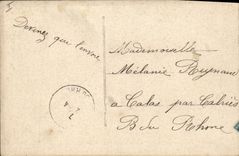 Devenez que l'envoie
Mademoiselle
Mélanie Reynaud
a Calas par Cabriès
B du Rhone